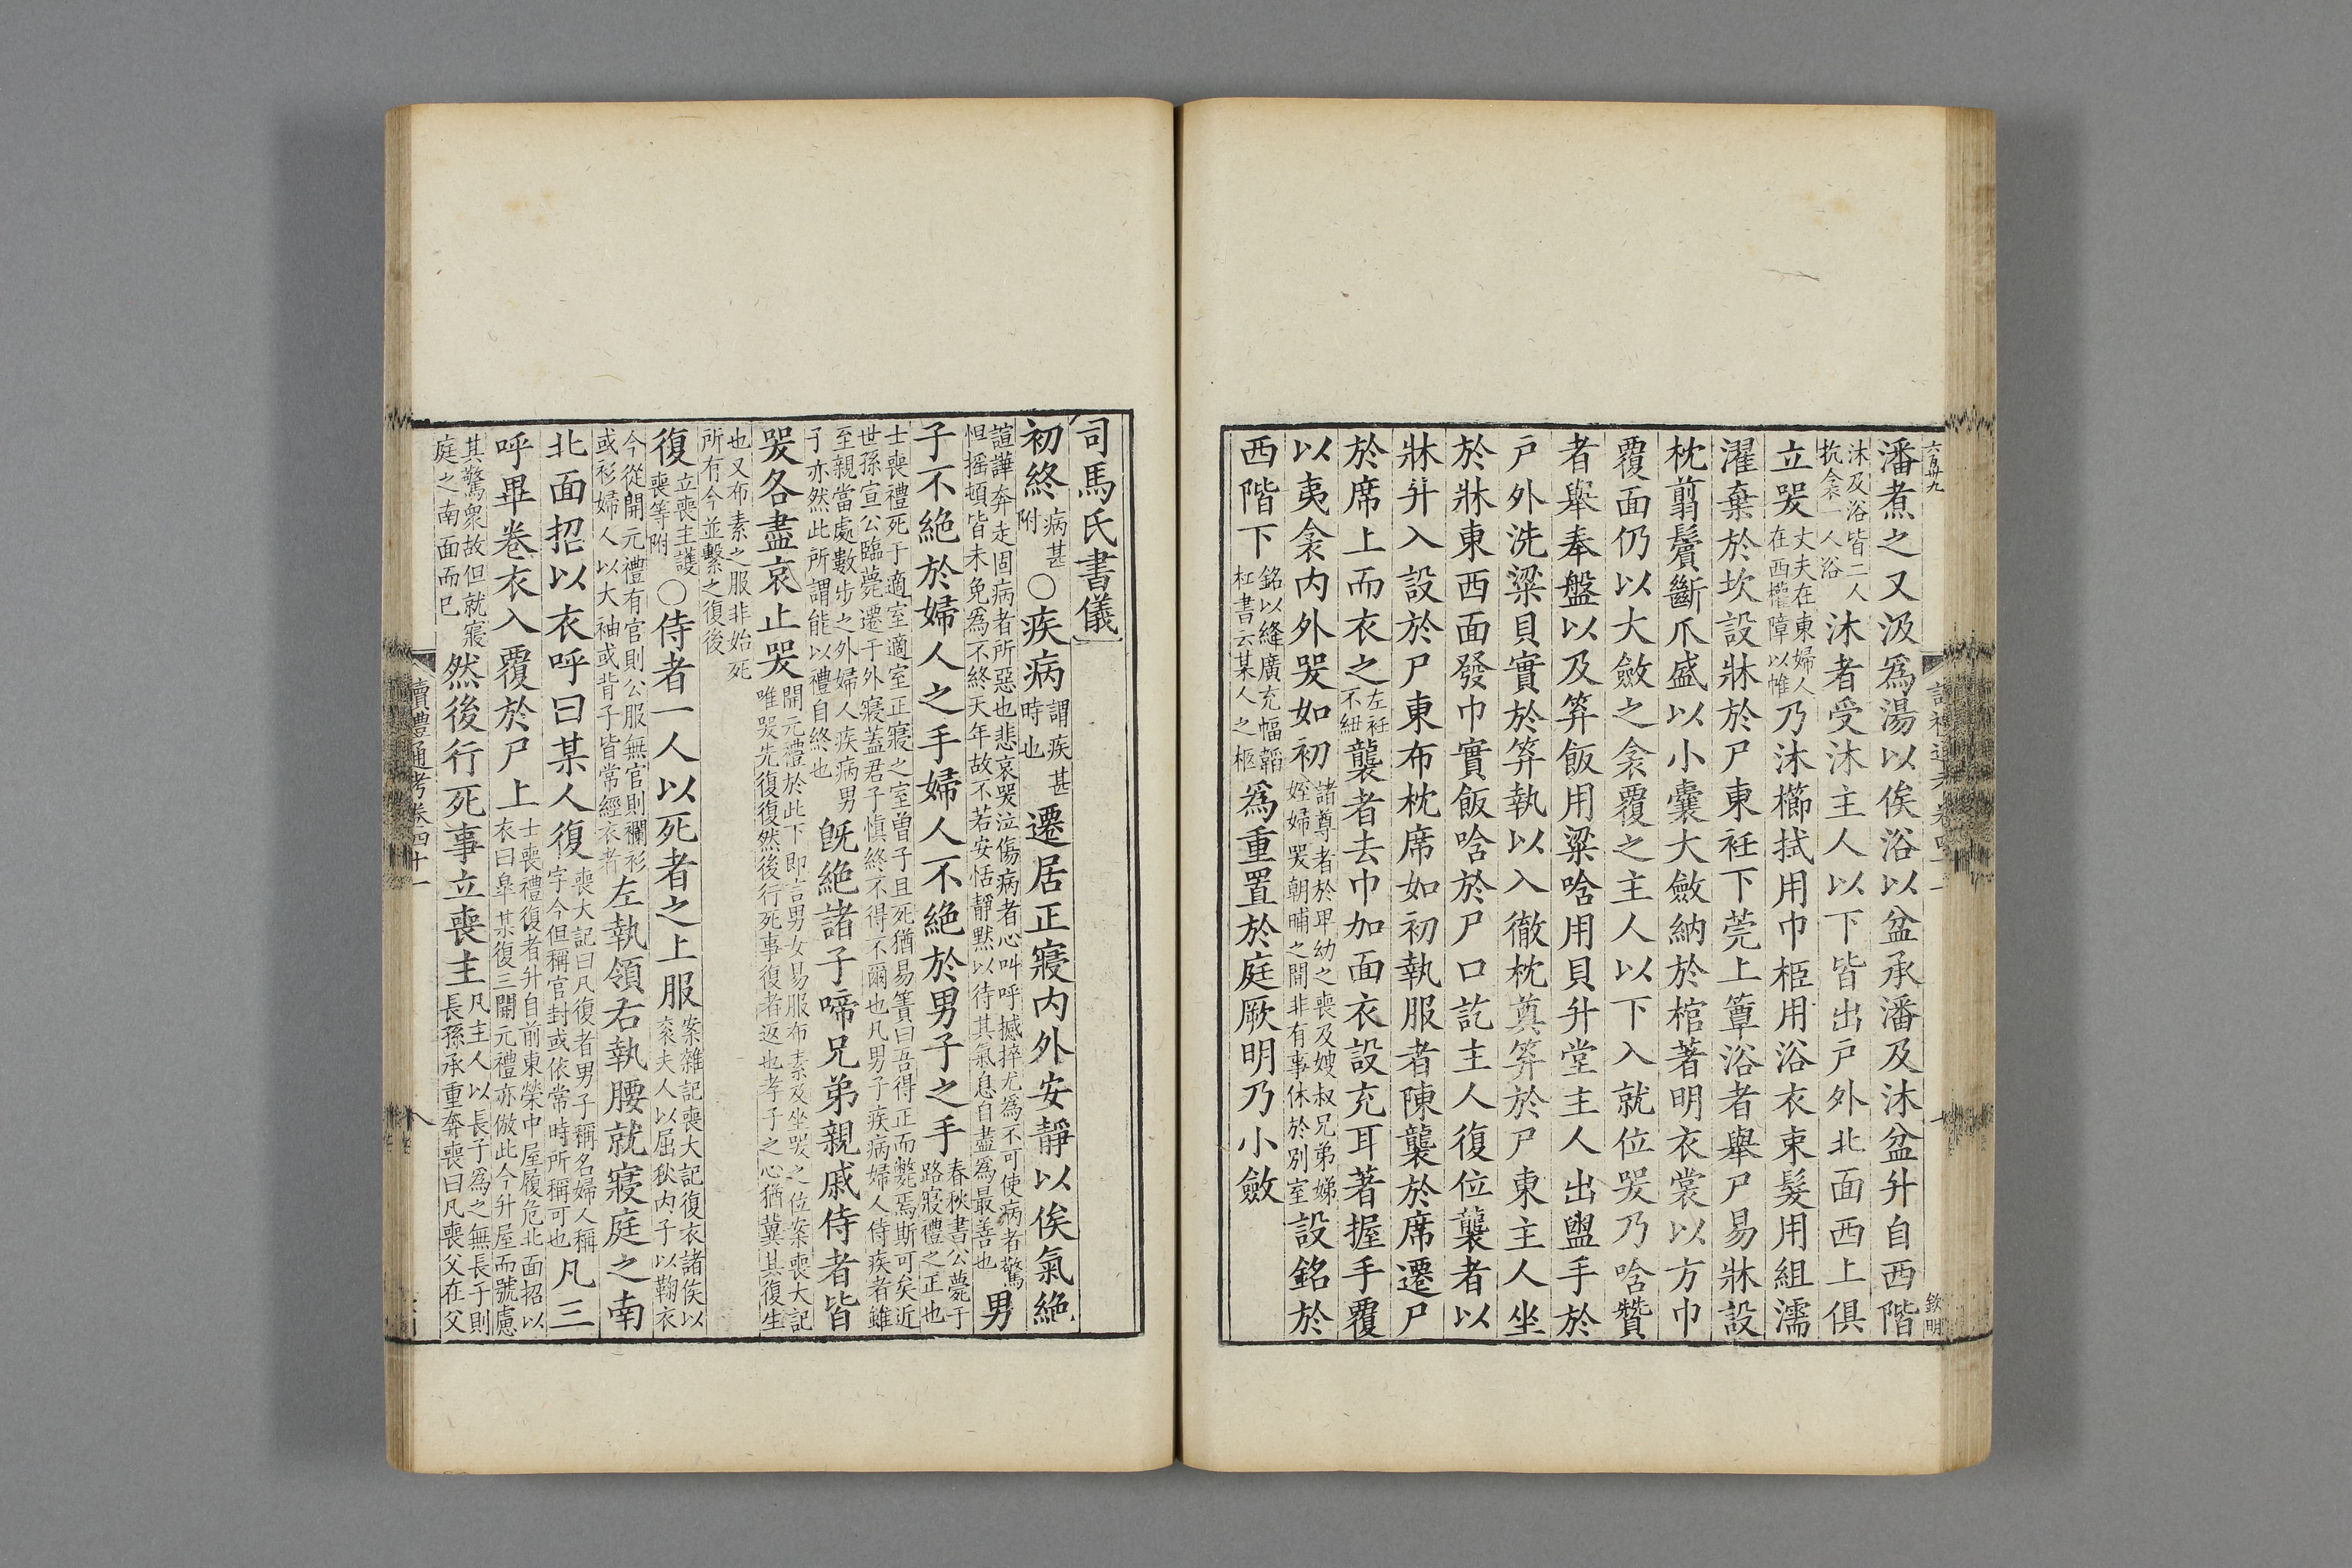 六百卅九
潘煮之又汲爲湯以俟浴以盆承潘及沐盆升自西階
沐及浴皆二人抗衾一人浴沐者受沐主人以下皆出戶外北面西上俱
立哭丈夫在東婦人在西權障以帷乃沐櫛拭用巾柩用浴衣束髮用組濡
濯棄於坎設牀於尸東衽下莞上簟浴者舉尸易牀設
枕翦鬢斷爪盛以小囊大斂納於棺著明衣裳以方巾
覆面仍以大斂之衾覆之主人以下入就位哭乃唅贊
者舉奉盤以及筭飯用粱唅用貝升堂主人出盥手於
戶外洗粱貝實於筭執以入徹枕奠筭於尸東主人坐
於牀東西面發巾實飯唅於尸口訖主人復位襲者以
牀升入設於尸東布枕席如初執服者陳襲於席遷尸
於席上而衣之左衽不紐襲者去巾加面衣設充耳著握手覆
以夷衾内外哭如初諸尊者於卑幼之喪及嫂叔兄弟娣姪婦哭朝晡之間非有事休於別室設銘於
西階下銘以絳廣充幅韜杠書云某人之柩爲重置於庭厥明乃小斂
欽明
司馬氏書儀
初終病甚附○疾病謂疾甚時也遷居正寢内外安靜以俟氣絶
諠譁奔走固病者所惡也悲哀哭泣傷病者心叫呼撼捽尤爲不可使病者驚怛揺頓皆未免爲不終天年故不若安恬靜默以待其氣息自盡爲最善也男
子不絶於婦人之手婦人不絶於男子之手春秋書公薨于路寢禮之正也
士喪禮死于適室適室正寢之室曾子且死猶易簀曰吾得正而斃焉斯可矣近世孫宣公臨薨遷于外寢蓋君子慎終不得不爾也凡男子疾病婦人侍疾者雖
至親當處數步之外婦人疾病男子亦然此所謂能以禮自終也旣絶諸子啼兄弟親戚侍者皆
哭各盡哀止哭開元禮於此下即言男女易服布素及坐哭之位案喪大記唯哭先復復然後行死事復者返也孝子之心猶冀其復生
也又布素之服非始死所有今並繫之復後
復立喪主護喪等附○侍者一人以死者之上服案雜記喪大記復衣諸侯以衮夫人以屈狄内子以鞠衣
今從開元禮有官則公服無官則襴衫或衫婦人以大袖或背子皆常經衣者左執領右執腰就寢庭之南
北面招以衣呼曰某人復喪大記曰凡復者男子稱名婦人稱字今但稱官封或依常時所稱可也凡三
呼畢卷衣入覆於尸上士喪禮復者升自前東榮中屋履危北面招以衣曰皐某復三開元禮亦倣此今升屋而號慮
其驚衆故但就寢庭之南面而已然後行死事立喪主凡主人以長子爲之無長子則長孫承重奔喪曰凡喪父在父
讀禮通考卷四十一
八